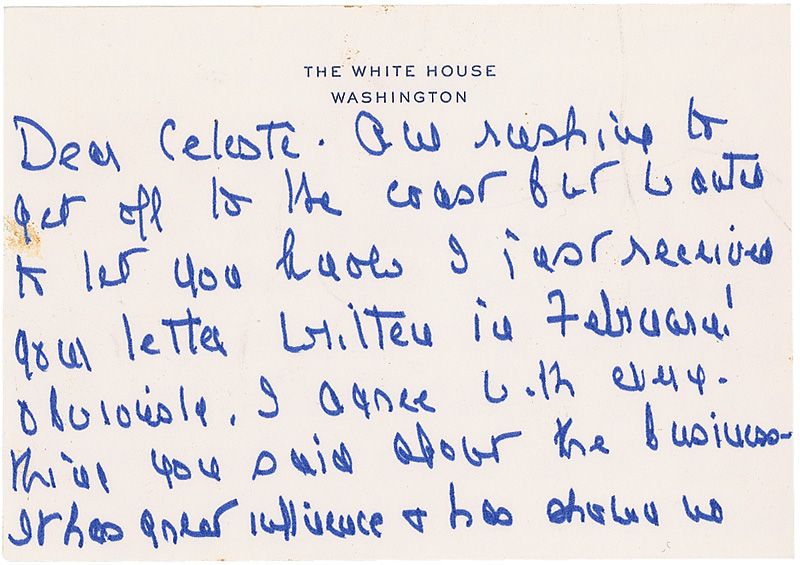 THE WHITE HOUSE
WASHINGTON
Dear Celeste. Am rushing to
get off to the coast but wanted
to let you know I just received
your letter written in February!
Obviously, I agree with every-
thing you said about the business-
It has great influence & has shown no